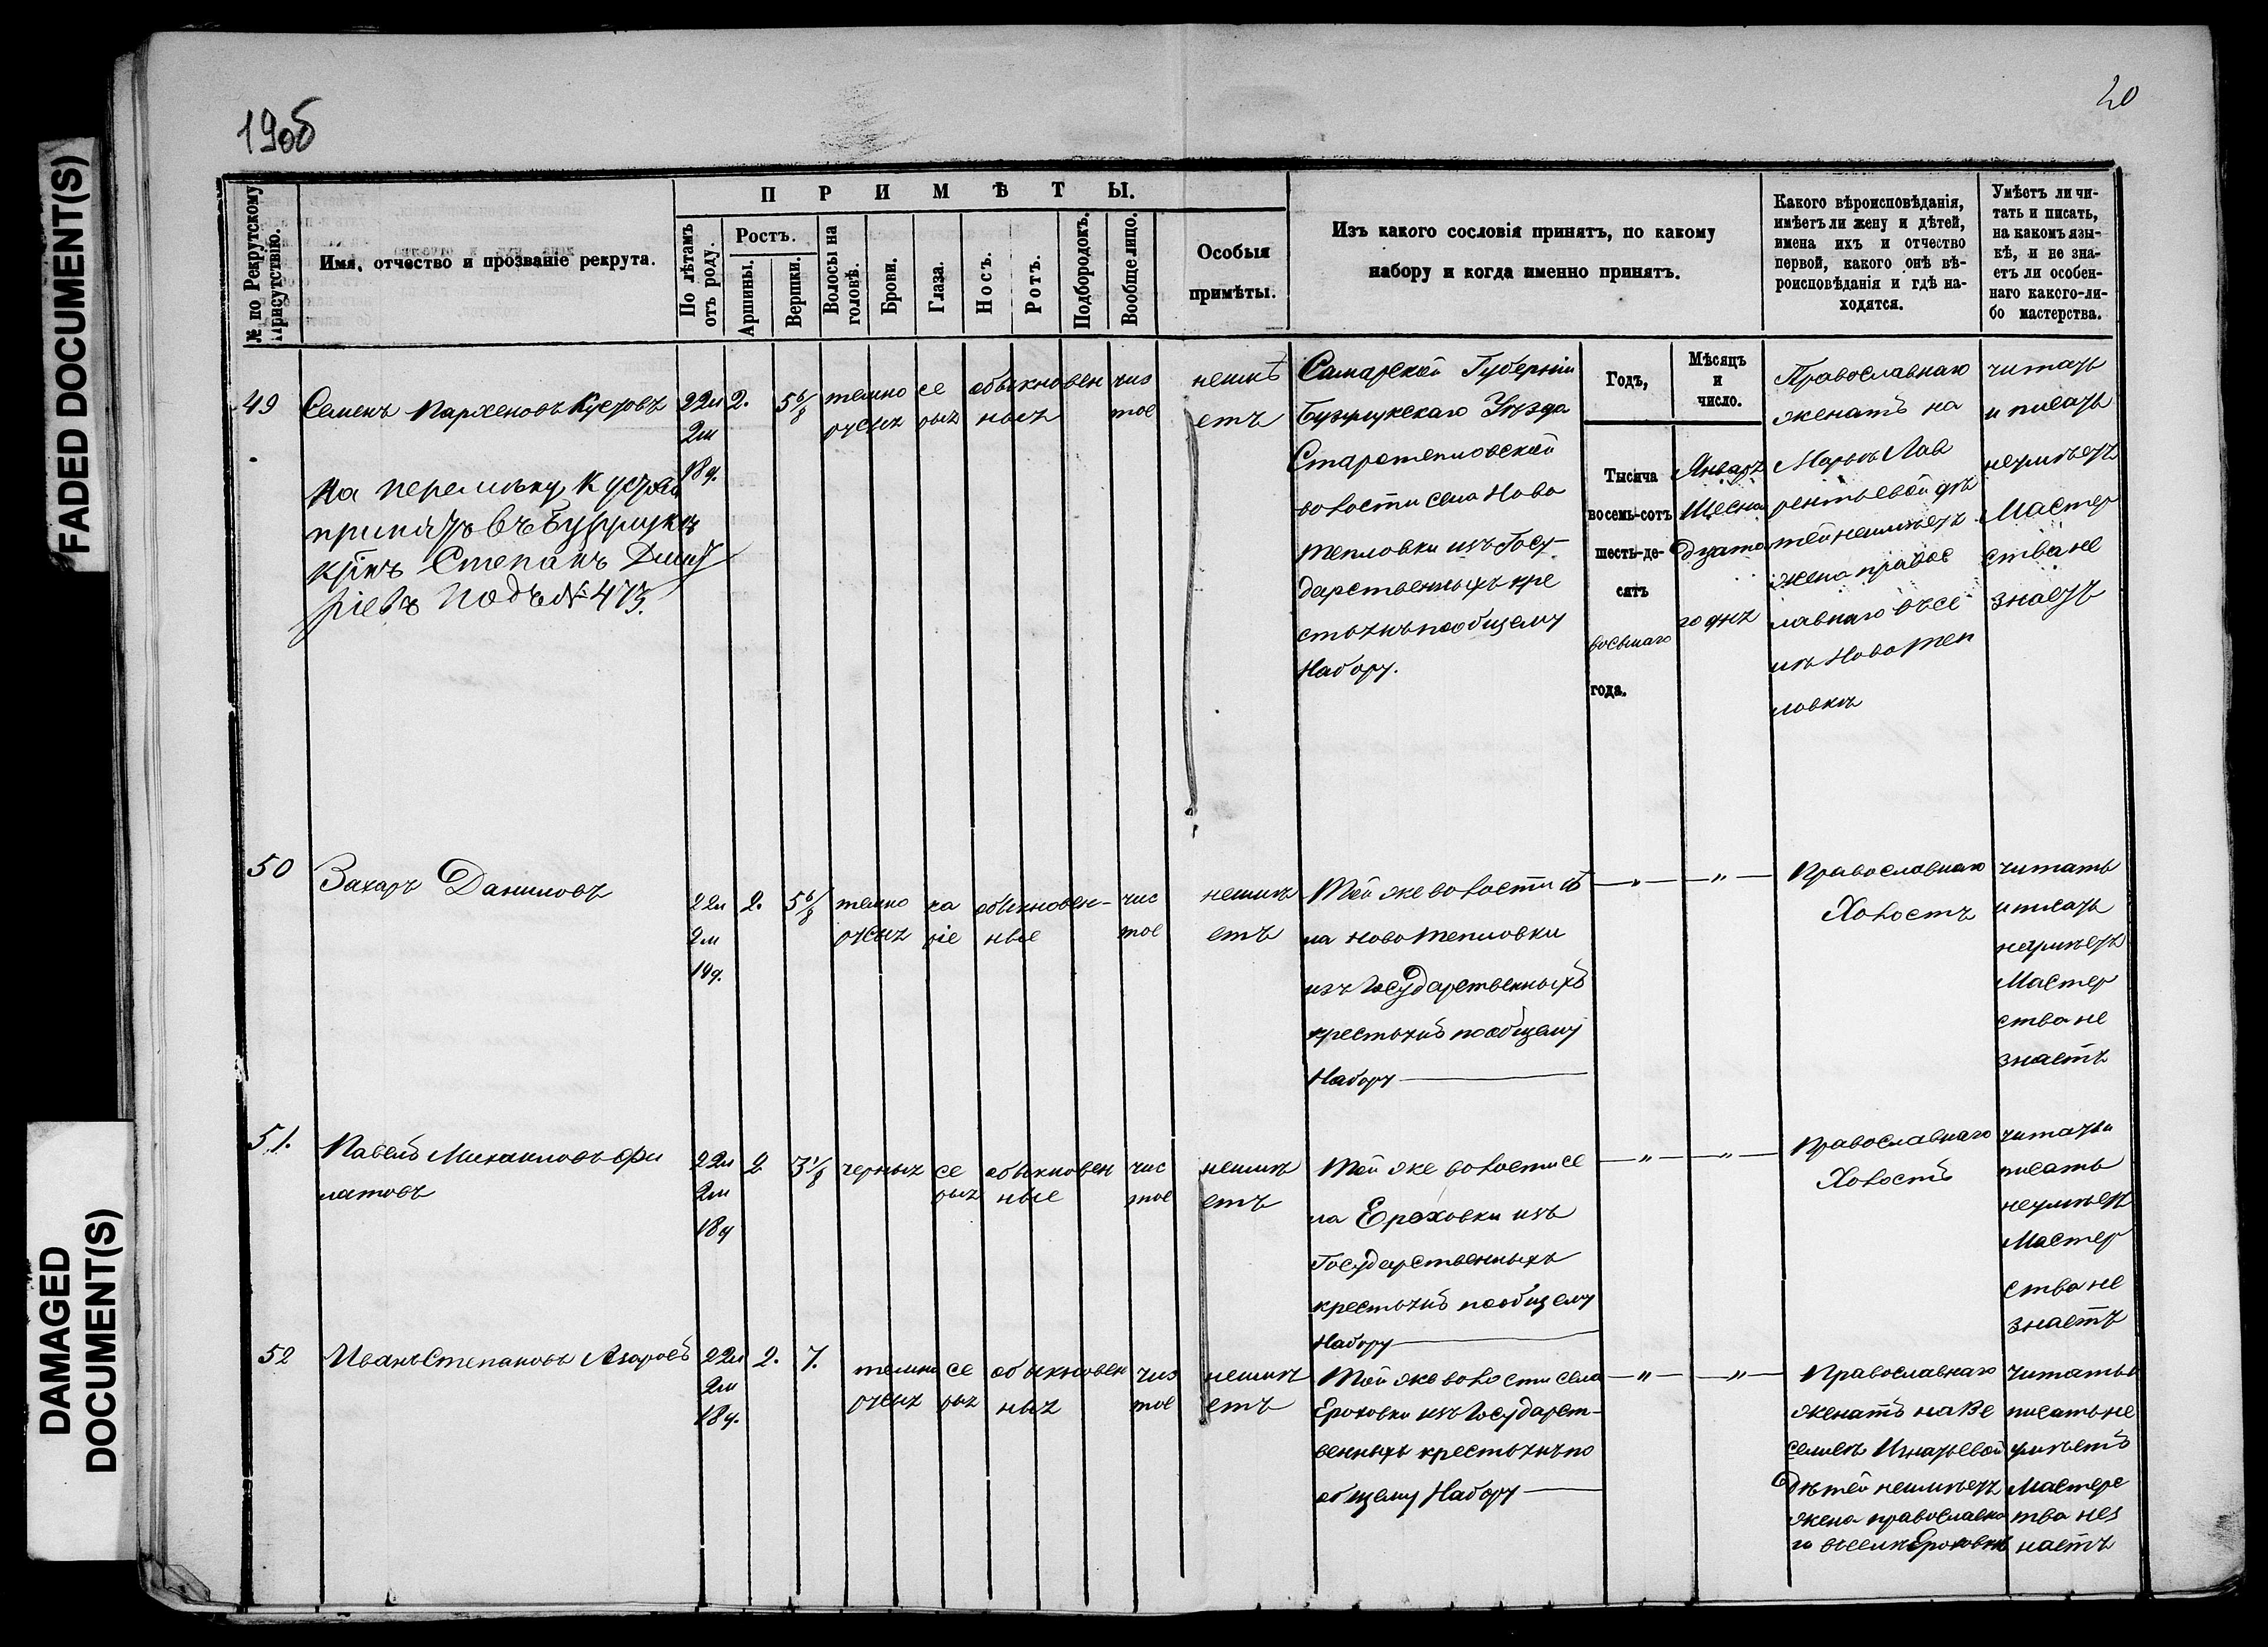 FADED DOCUMENT(S)
DAMAGED
DOCUMENT(S)
19об
20
№ по Рекрутскому
Присутствію.
Имя, отчество и прозваніе рекрута.
ПРИМѢТЫ.
По лѣтамъ
отъ роду.
Ростъ.
Аршины.
Вершки.
Волосы на
головѣ.
Брови.
Глаза.
Носъ.
Ротъ.
Подбородокъ.
Вообще лицо.
Особыя
примѣты.
Изъ какого сословія принятъ, по какому
набору и когда именно принятъ.
Какого вѣроисповѣданія,
имѣетъ ли жену и дѣтей,
имена ихъ и отчество
первой, какого онѣ вѣ-
роисповѣданія и гдѣ на-
ходятся.
Умѣетъ ли чи-
тать и писать,
на какомъ язы-
кѣ, и не зна-
етъ ли особен-
наго какого-ли-
бо мастерства.
49
Семенъ Парженовъ
На перемѣну
принятъ въ
Степанъ
подъ № 473.
22л
2м
18д.
2.
5 6/8
темно
русыхъ
се
рыхъ
обыкновен
ныхъ
чис
тое
неимѣ
етъ
Самарской Губерніи
Бузулукскаго Уѣзда
Старотепловской
волости села Ново
тепловки изъ Госу-
дарственныхъ кре
стьянъ по общему
Набору.
Годъ,
Тысяча
восемь-сотъ
шесть-де-
сятъ
восьмаго
года.
Мѣсяцъ
и
число.
Январь
Шесна
дцата
го дня
Православнаго
женатъ на
Марьѣ Лав
рентьевой дѣ
тей неимѣетъ
жена правос
лавнаго въ се
лѣ Новотеп
ловкѣ
читать
и писать
неумѣетъ
Мастер
ства не
знаетъ
50
Захаръ Даниловъ
22л
2м
14д.
2.
5 6/8
темно
русыхъ
ка
ріе
обыкновен-
ные
чис
тое
неимѣ
етъ
Той же волости се
ла Новотепловки
изъ Государственныхъ
крестьянъ по общему
Набору
— " —
— " —
Православнаго
Холостъ
читать
и писать
неумѣетъ
Мастер
ства не
знаетъ
51.
Павелъ Михаиловъ Фи
латовъ
22л
2м
18д
2
3 1/8
черныхъ
се
рыхъ
обыкновен
ные
чис
тое
неимѣ
етъ
Той же волости се
ла Ероховки изъ
Государственныхъ
крестьянъ по общему
Набору
— " —
— " —
Православнаго
Холостъ
читать и
писать
неумѣетъ
Мастер
ства не
знаетъ
52
Иванъ Степановъ Азаровъ
22л
2м
18д.
2.
7.
темно
русыхъ
се
рыхъ
обыкновен
ныхъ
чис
тое
неимѣ
етъ
Той же волости села
Ероховки изъ Государст-
венныхъ крестьянъ по
общему Набору
— " —
— " —
Православнаго
женатъ на Ве
Игнатьевой
Дѣтей неимѣетъ
жена православна
го въ селѣ Ероховкѣ
читать и
писать не
умѣетъ
Мастерс
тва нез
наетъ